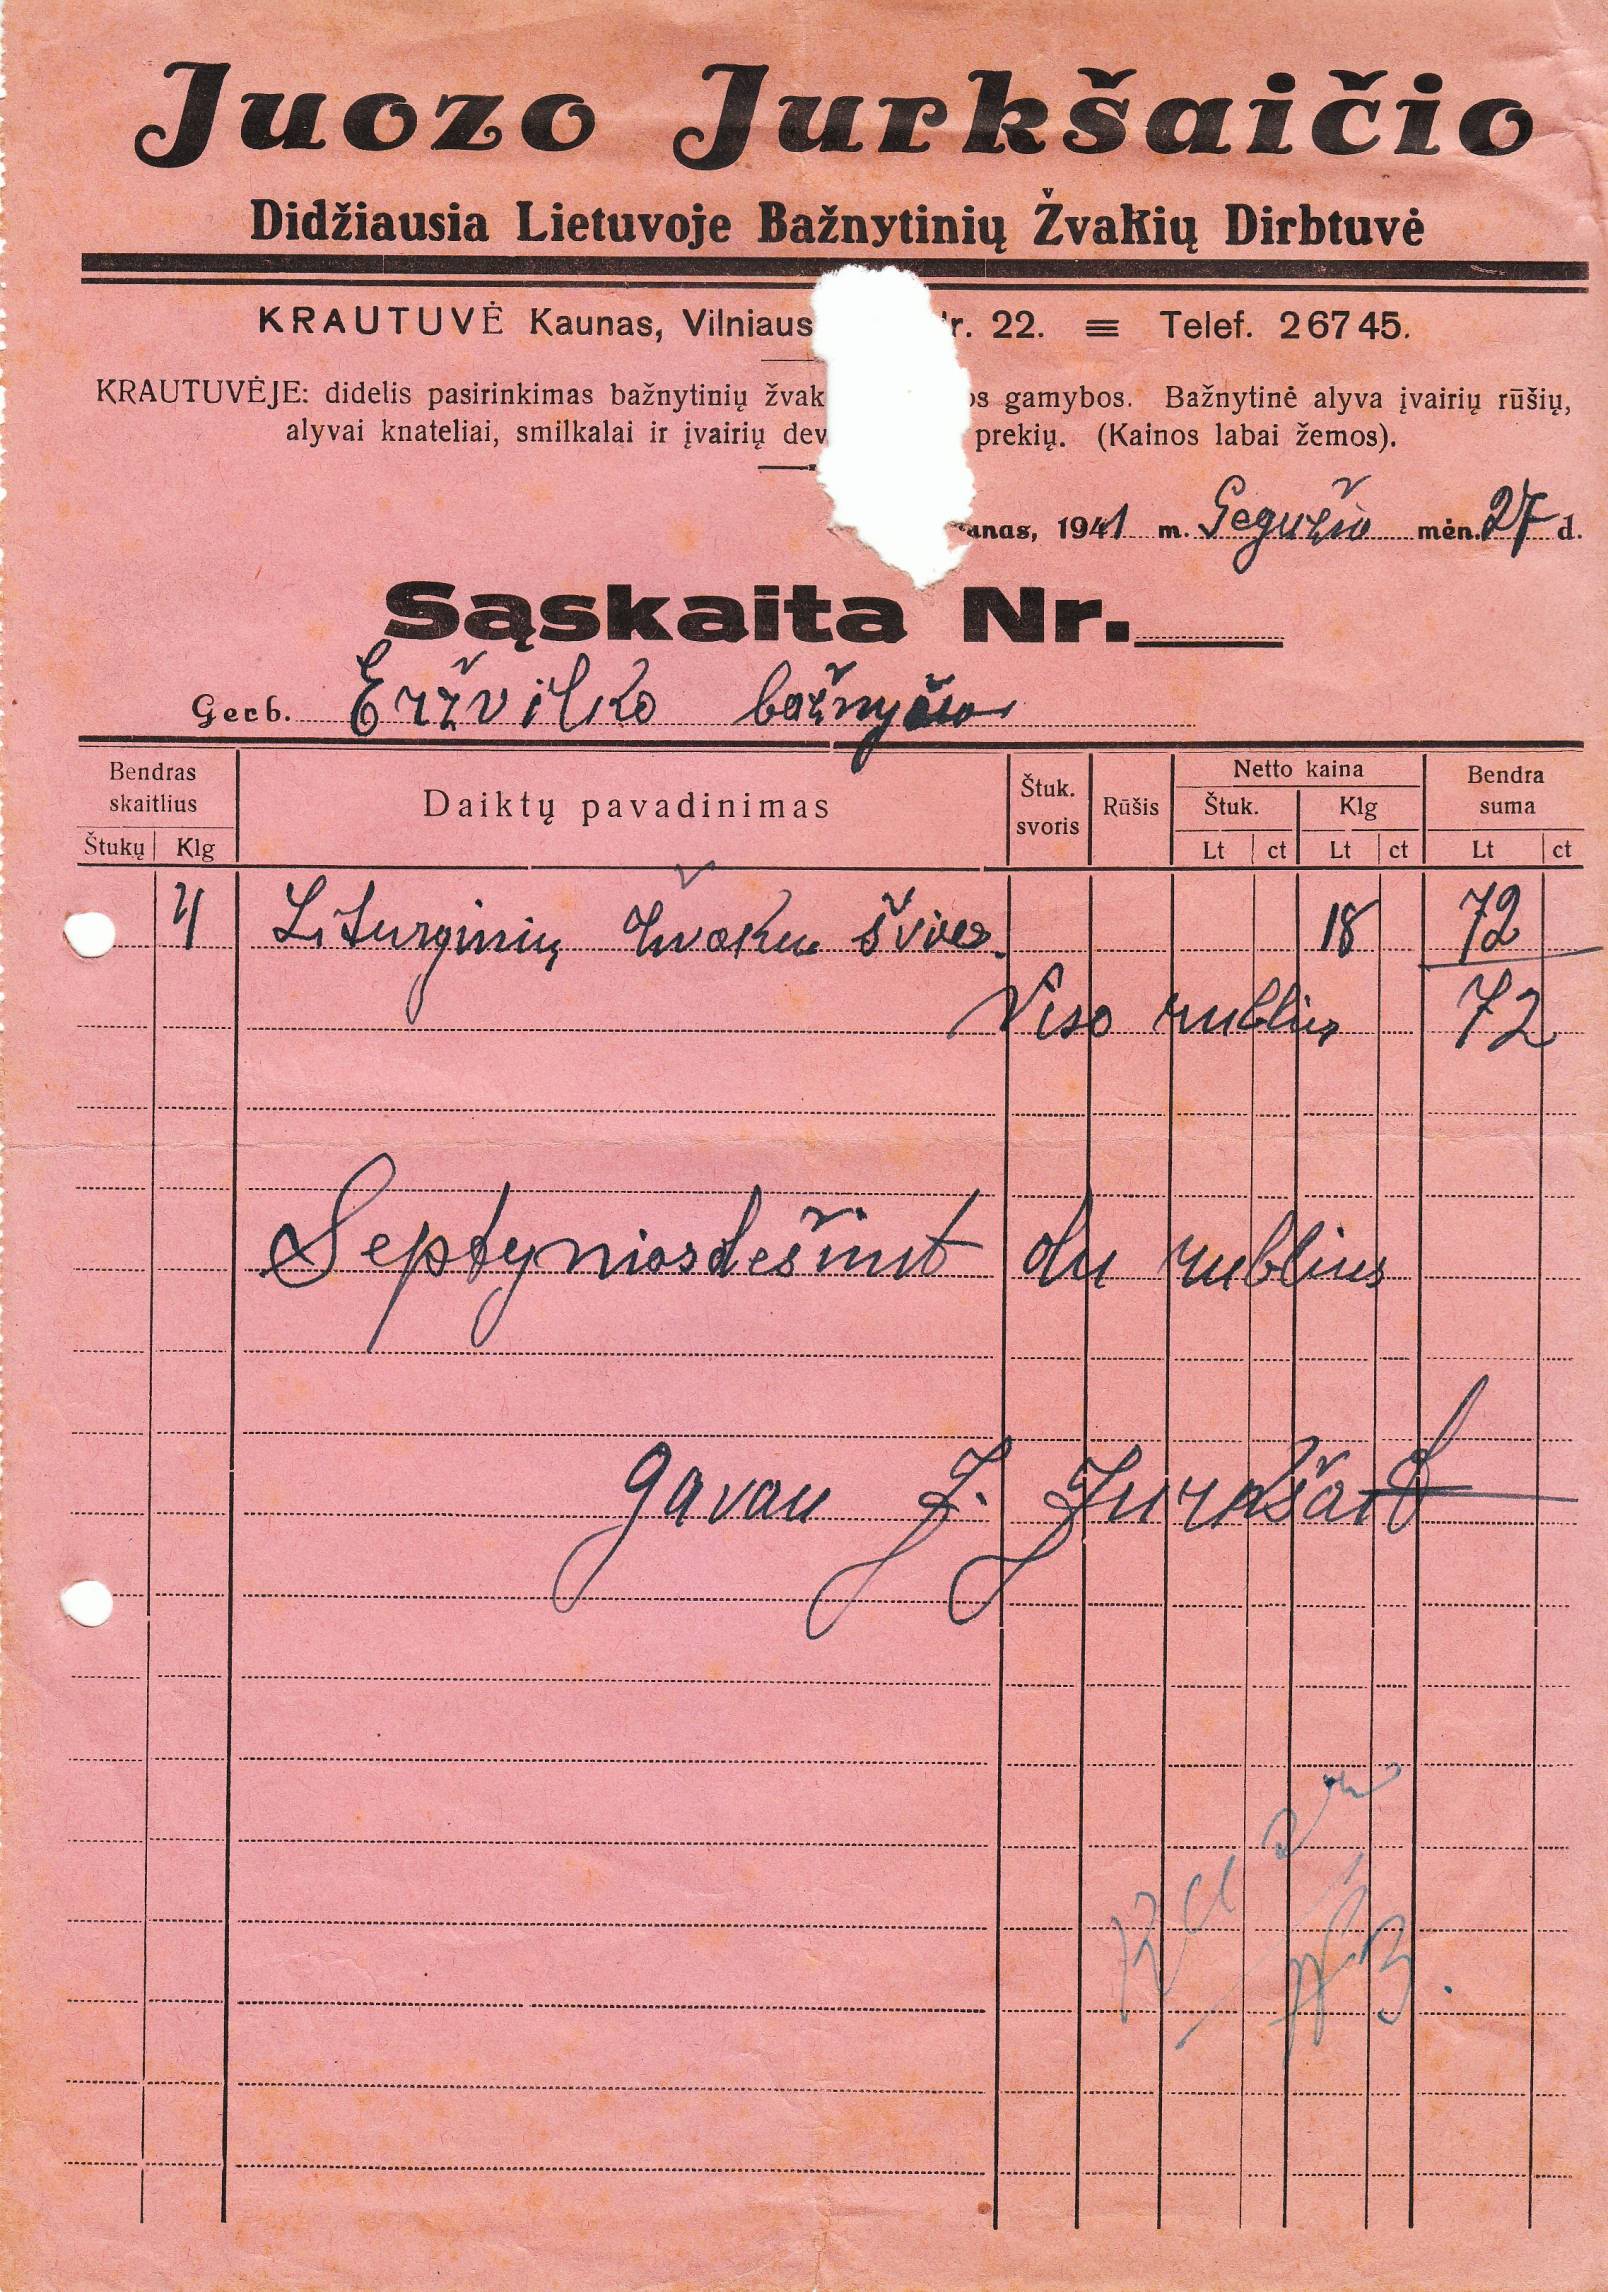 Juozo Jurkšaičio
Didžiausia Lietuvoje Bažnytinių Žvakių Dirbtuvė
KRAUTUVĖ Kaunas, Vilniaus r. 22. ≡ Telef. 26745.
KRAUTUVĖJE: didelis pasirinkimas bažnytinių žvak os gamybos. Bažnytinė alyva įvairių rūšių,
alyvai knateliai, smilkalai ir įvairių dev prekių. (Kainos labai žemos).
anas, 1941 m. Gegužio mėn. 27 d.
Sąskaita Nr.
Gerb. Eržvilko bažnyčia
Bendras skaitlius Daiktų pavadinimas Štuk. svoris Rūšis Netto kaina Bendra suma
Štuk. Klg
Štukų Klg Lt ct Lt ct Lt ct
4 Liturginių žvakių švies. 18 72
Viso rublių 72
Septyniasdešimt du rublius
gavau J. Jurkšait